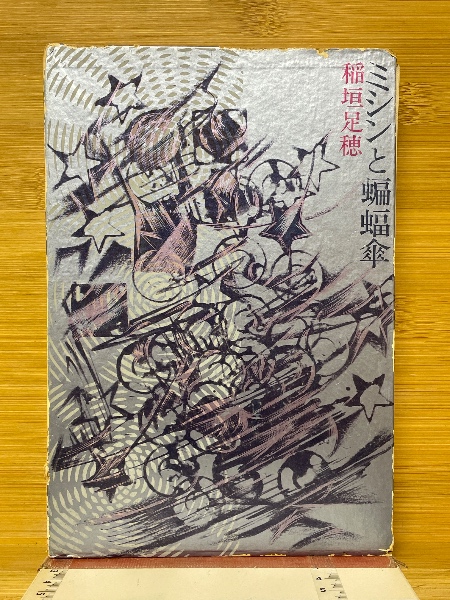 ミシンと蝙蝠傘
稲垣足穂